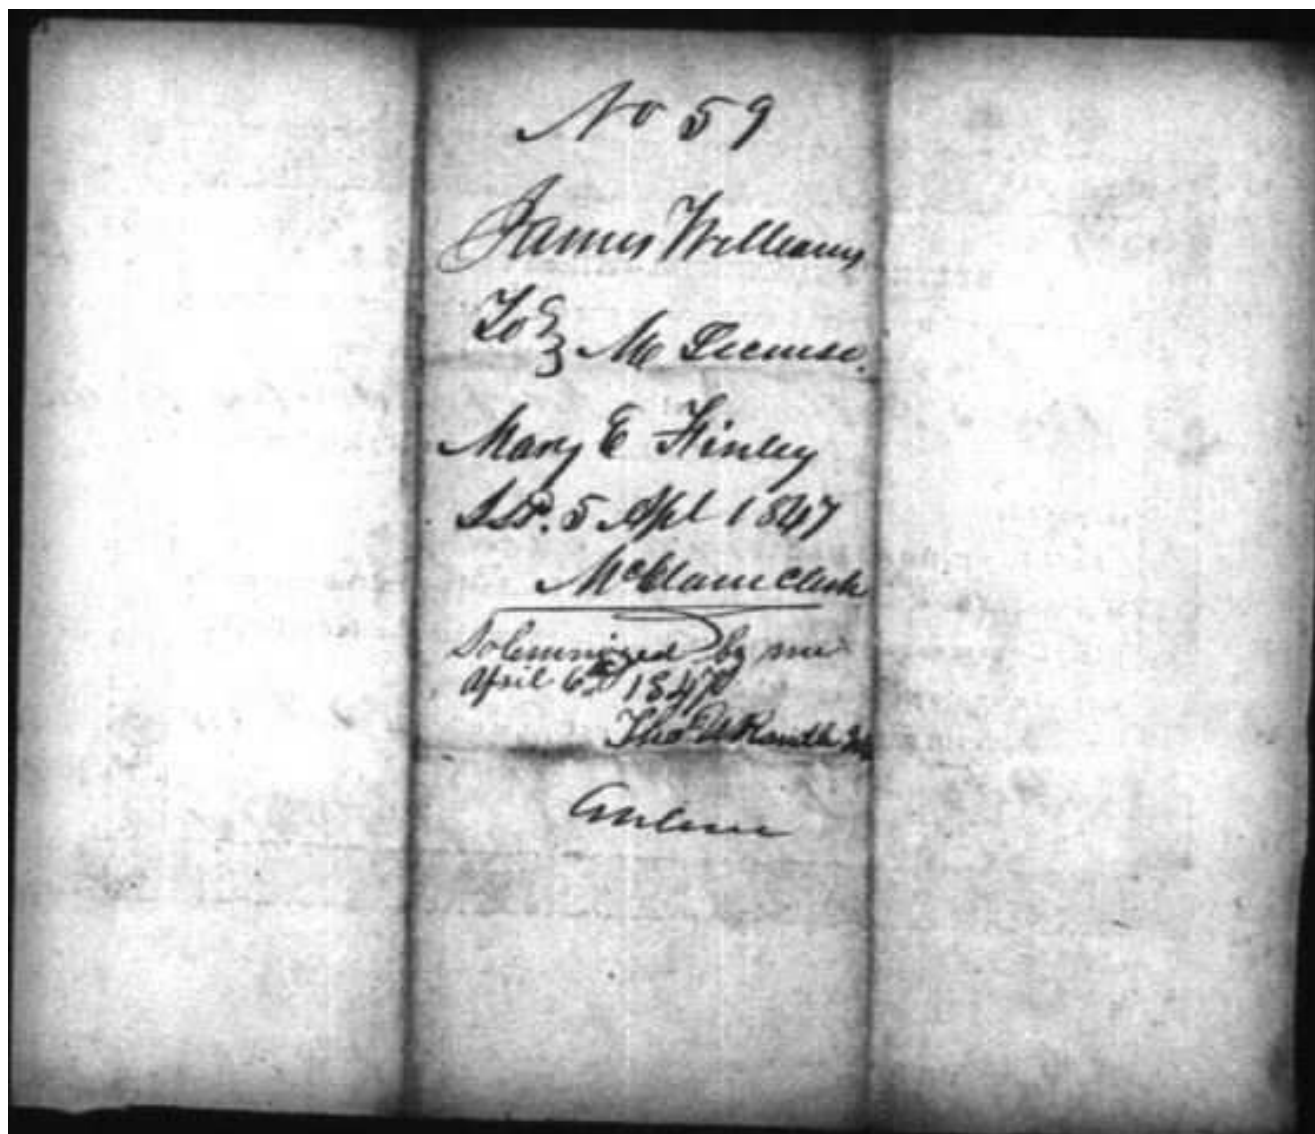 No 59
James Williams
To } M License.
Mary E Finley
Iss. 5 Apl 1847
McClain Clerk
Solemnized by me
April 6th 1847
Thos